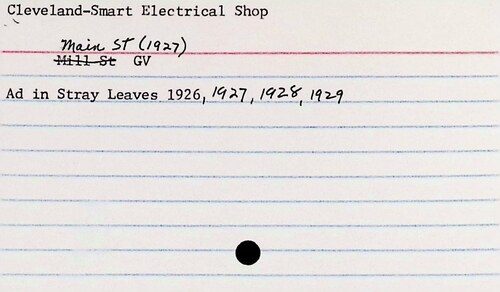 Cleveland-Smart Electrical Shop
Main St (1927)
Mill St GV
Ad in Stray Leaves 1926, 1927, 1928, 1929